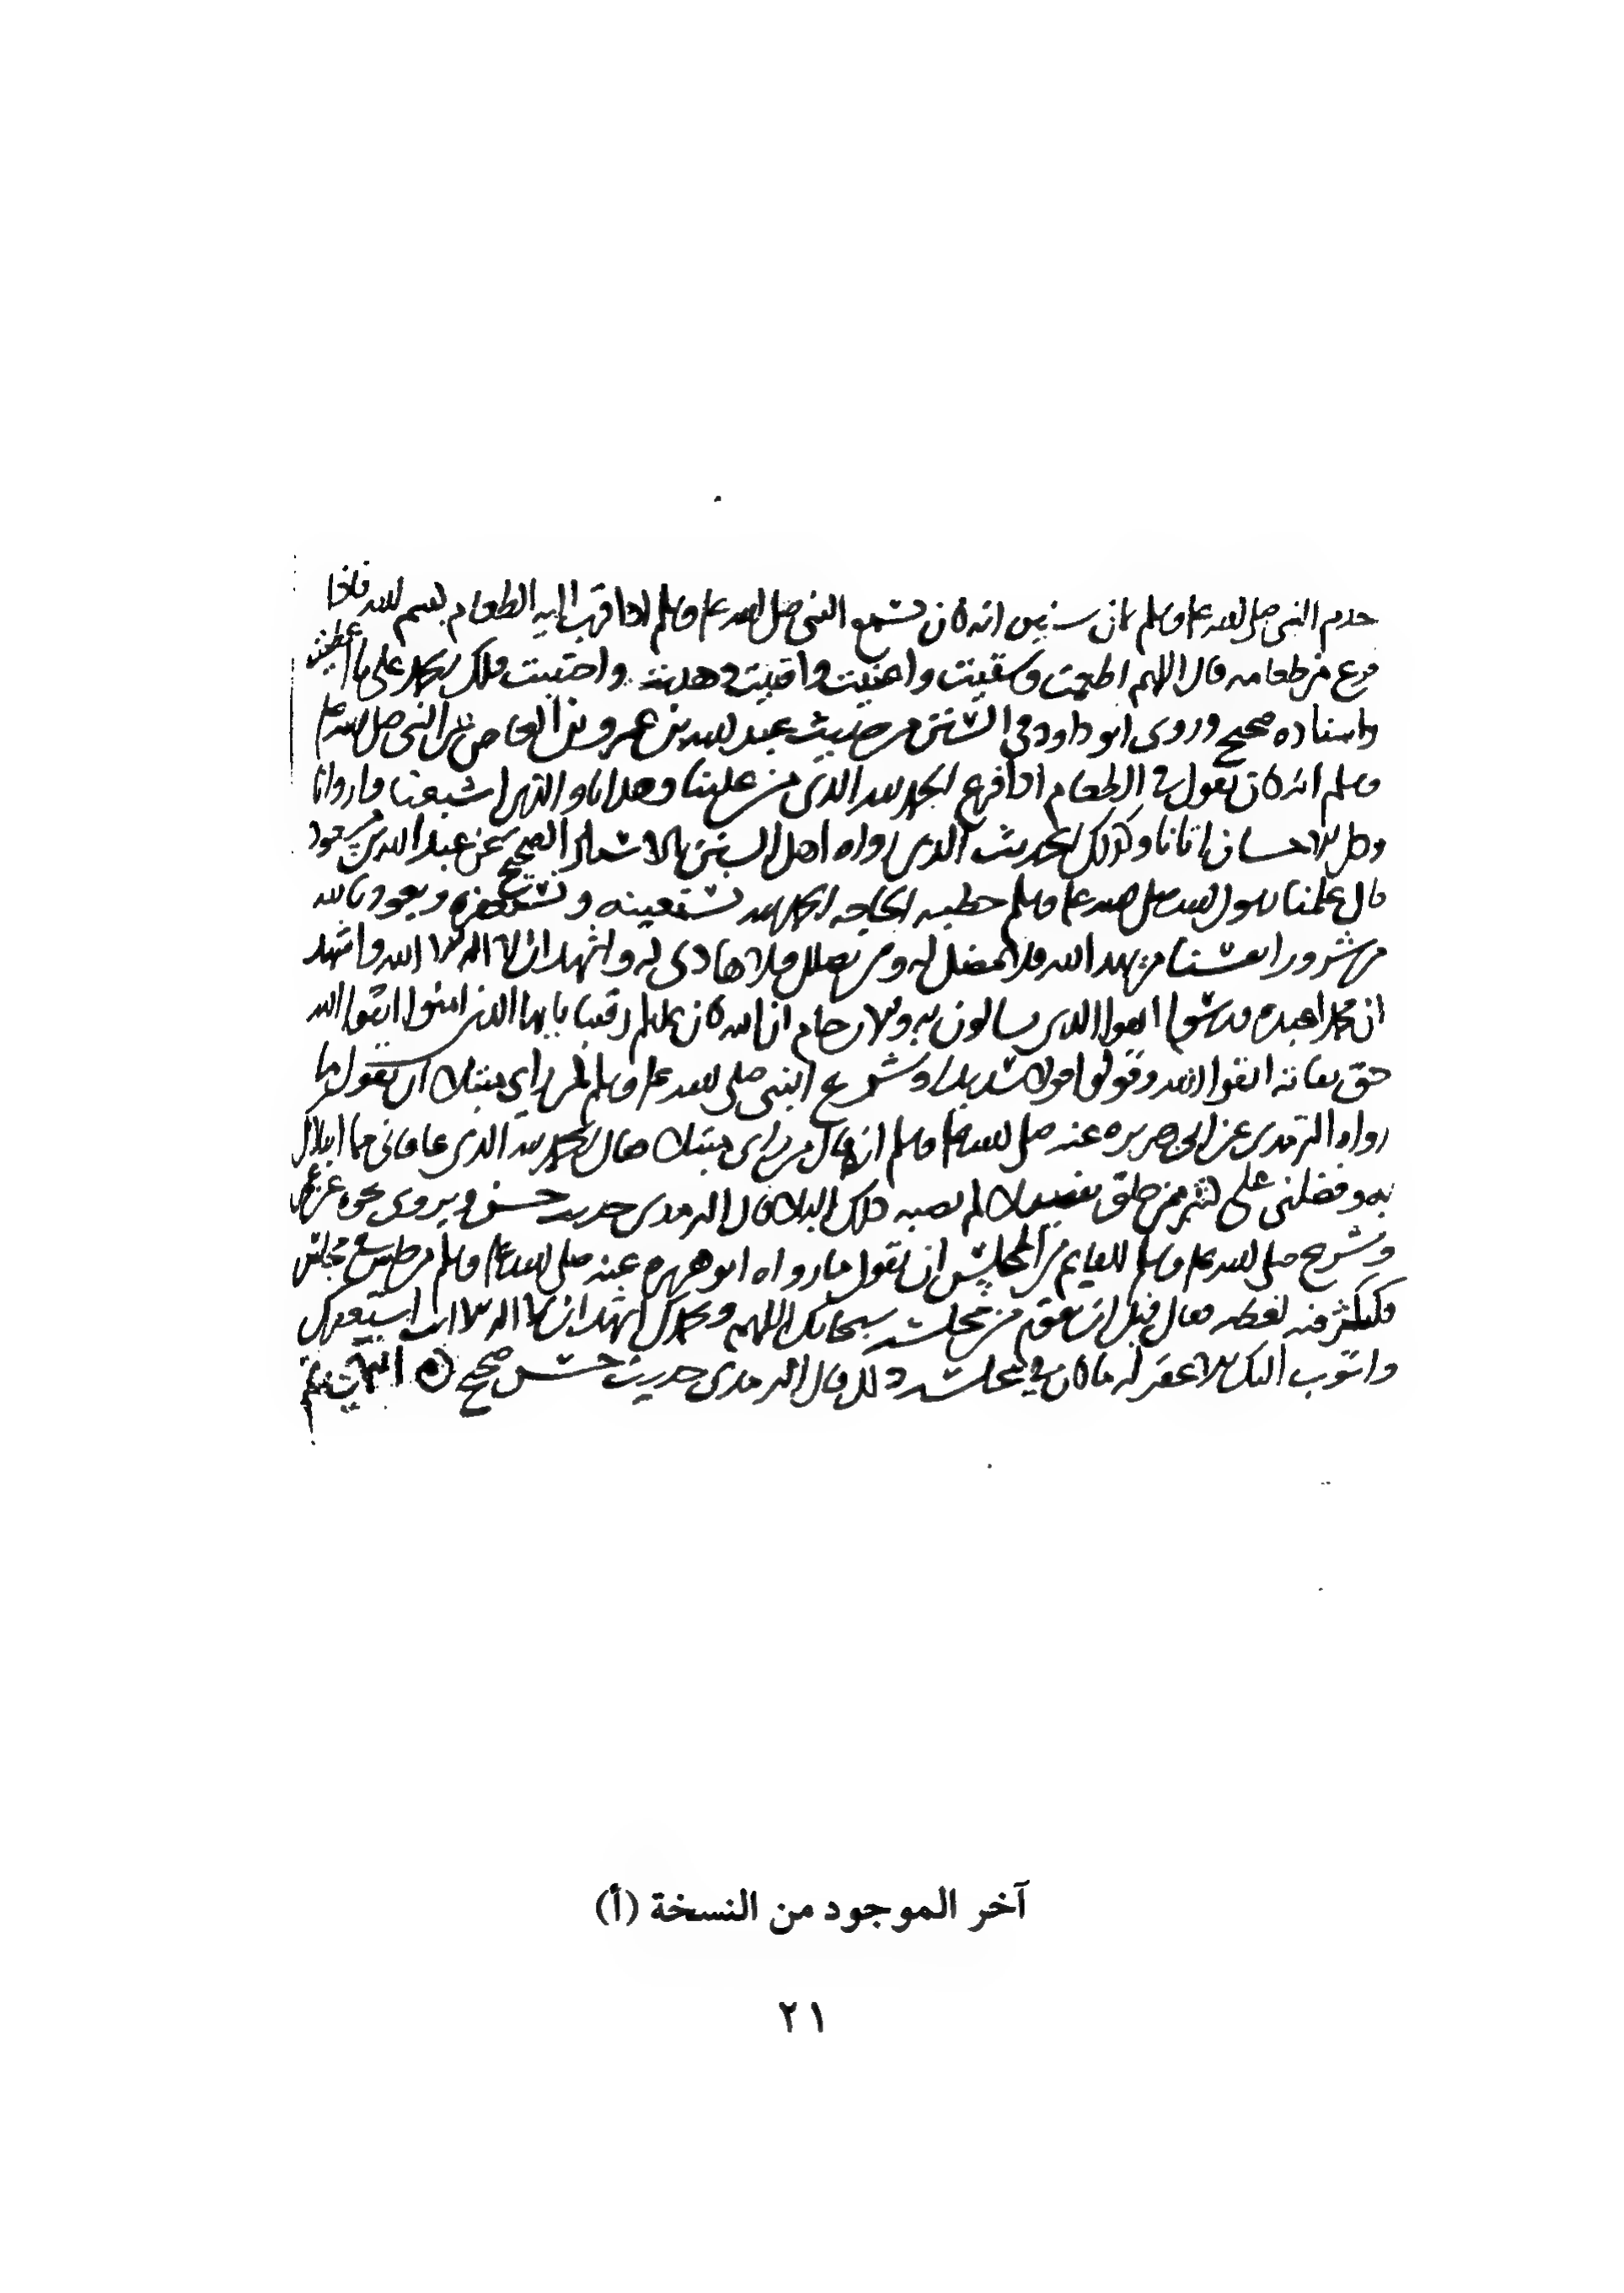 خدم النبي صلى الله عليه وسلم ثمان سنين انه كان يسمع النبي صلى الله عليه وسلم اذا قرب اليه الطعام بسم الله فاذا
فرغ من طعامه قال اللهم اطعمت وسقيت واغنيت واقنيت وهديت واحتبيت فلك الحمد على ما اعطيت
واسناده صحيح وروى ابو داود في السنن من حديث عبد الله بن عمرو بن العاص عن النبي صلى الله عليه
وسلم انه كان يقول في الطعام اذا فرغ الحمد لله الذي من علينا وهدانا والذي اشبعنا واروانا
وكل الاحسان اتانا وكذلك الحديث الذي رواه اهل السنن بالاسناد الصحيح عن عبد الله بن مسعود
قال علمنا رسول الله صلى الله عليه وسلم خطبة الحاجه الحمد لله نستعينه ونستغفره ونعوذ بالله
من شرور انفسنا من يهد الله فلا مضل له ومن يضلل فلا هادى له واشهد ان لا اله الا الله واشهد
ان محمدا عبده ورسوله اتقوا الله الذي تسالون به والارحام ان الله كان عليكم رقيبا يا يها الذين امنوا اتقوا الله
حق تقاته اتقوا الله وقولوا قولا سديدا وشرع النبي صلى الله عليه وسلم لمن راى مبتلا ان يقول ما
رواه الترمذى عن ابي هريره عنه صلى الله عليه وسلم انه قال من راى مبتلا فقال الحمد لله الذى عافاني مما ابتلاك
به وفضلني على كثير ممن خلق تفضيلا لم يصبه ذلك البلاء قال الترمذى حديث حسن ويروى نحوه عن عمر
وشرع صلى الله عليه وسلم للقايم من المجلس ان يقول ما رواه ابو هريره عنه صلى الله عليه وسلم من جلس مجلس
فكثر فيه لغطه فقال قبل ان يقوم من مجلسه سبحانك اللهم وبحمدك اشهد ان لا اله الا انت استغفرك
واتوب اليك الا غفر له ما كان في مجلسه ذلك قال الترمذى حديث حسن صحيح
آخر الموجود من النسخة (أ)
٢١